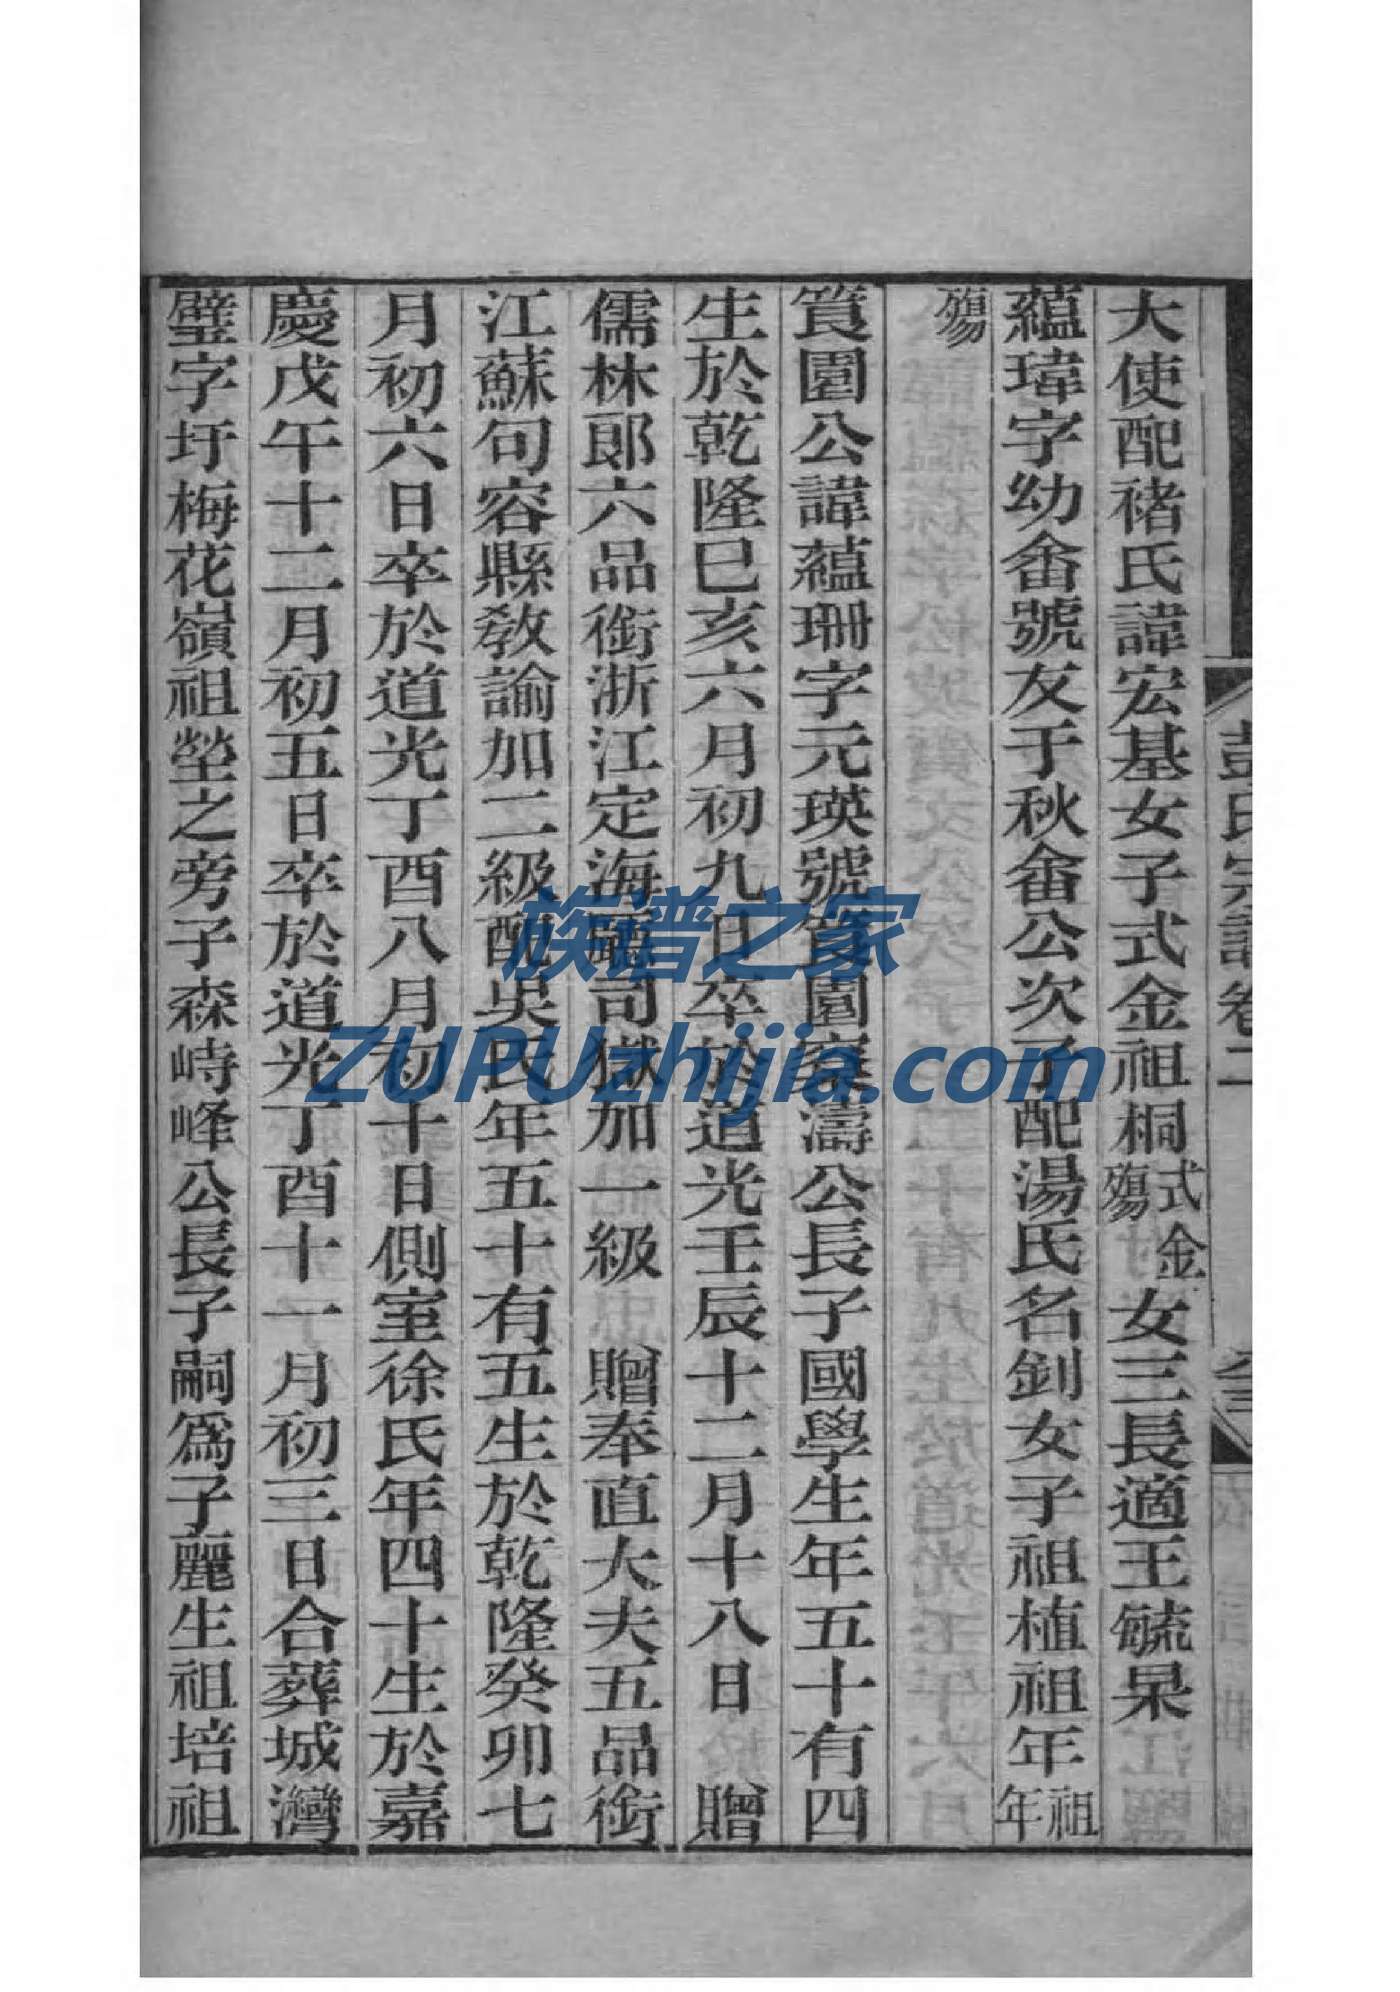 大使配褚氏諱宏基女子式金祖桐式金殤女三長適王毓杲
蘊瑋字幼畬號友于秋畬公次子配湯氏名釗女子祖植祖年祖年
殤
篔園公諱蘊珊字元瑛號篔園蘂濤公長子國學生年五十有四
生於乾隆巳亥六月初九日卒於道光壬辰十二月十八日 贈
儒林郎六品銜浙江定海廳司獄加一級 贈奉直大夫五品銜
江蘇句容縣教諭加二級配吳氏年五十有五生於乾隆癸卯七
月初六日卒於道光丁酉八月初十日側室徐氏年四十生於嘉
慶戊午十二月初五日卒於道光丁酉十一月初三日合葬城灣
璧字圩梅花嶺祖塋之旁子森峙峰公長子嗣爲子麗生祖培祖
彭氏宗譜卷二
族谱之家
ZUPUzhijia.com